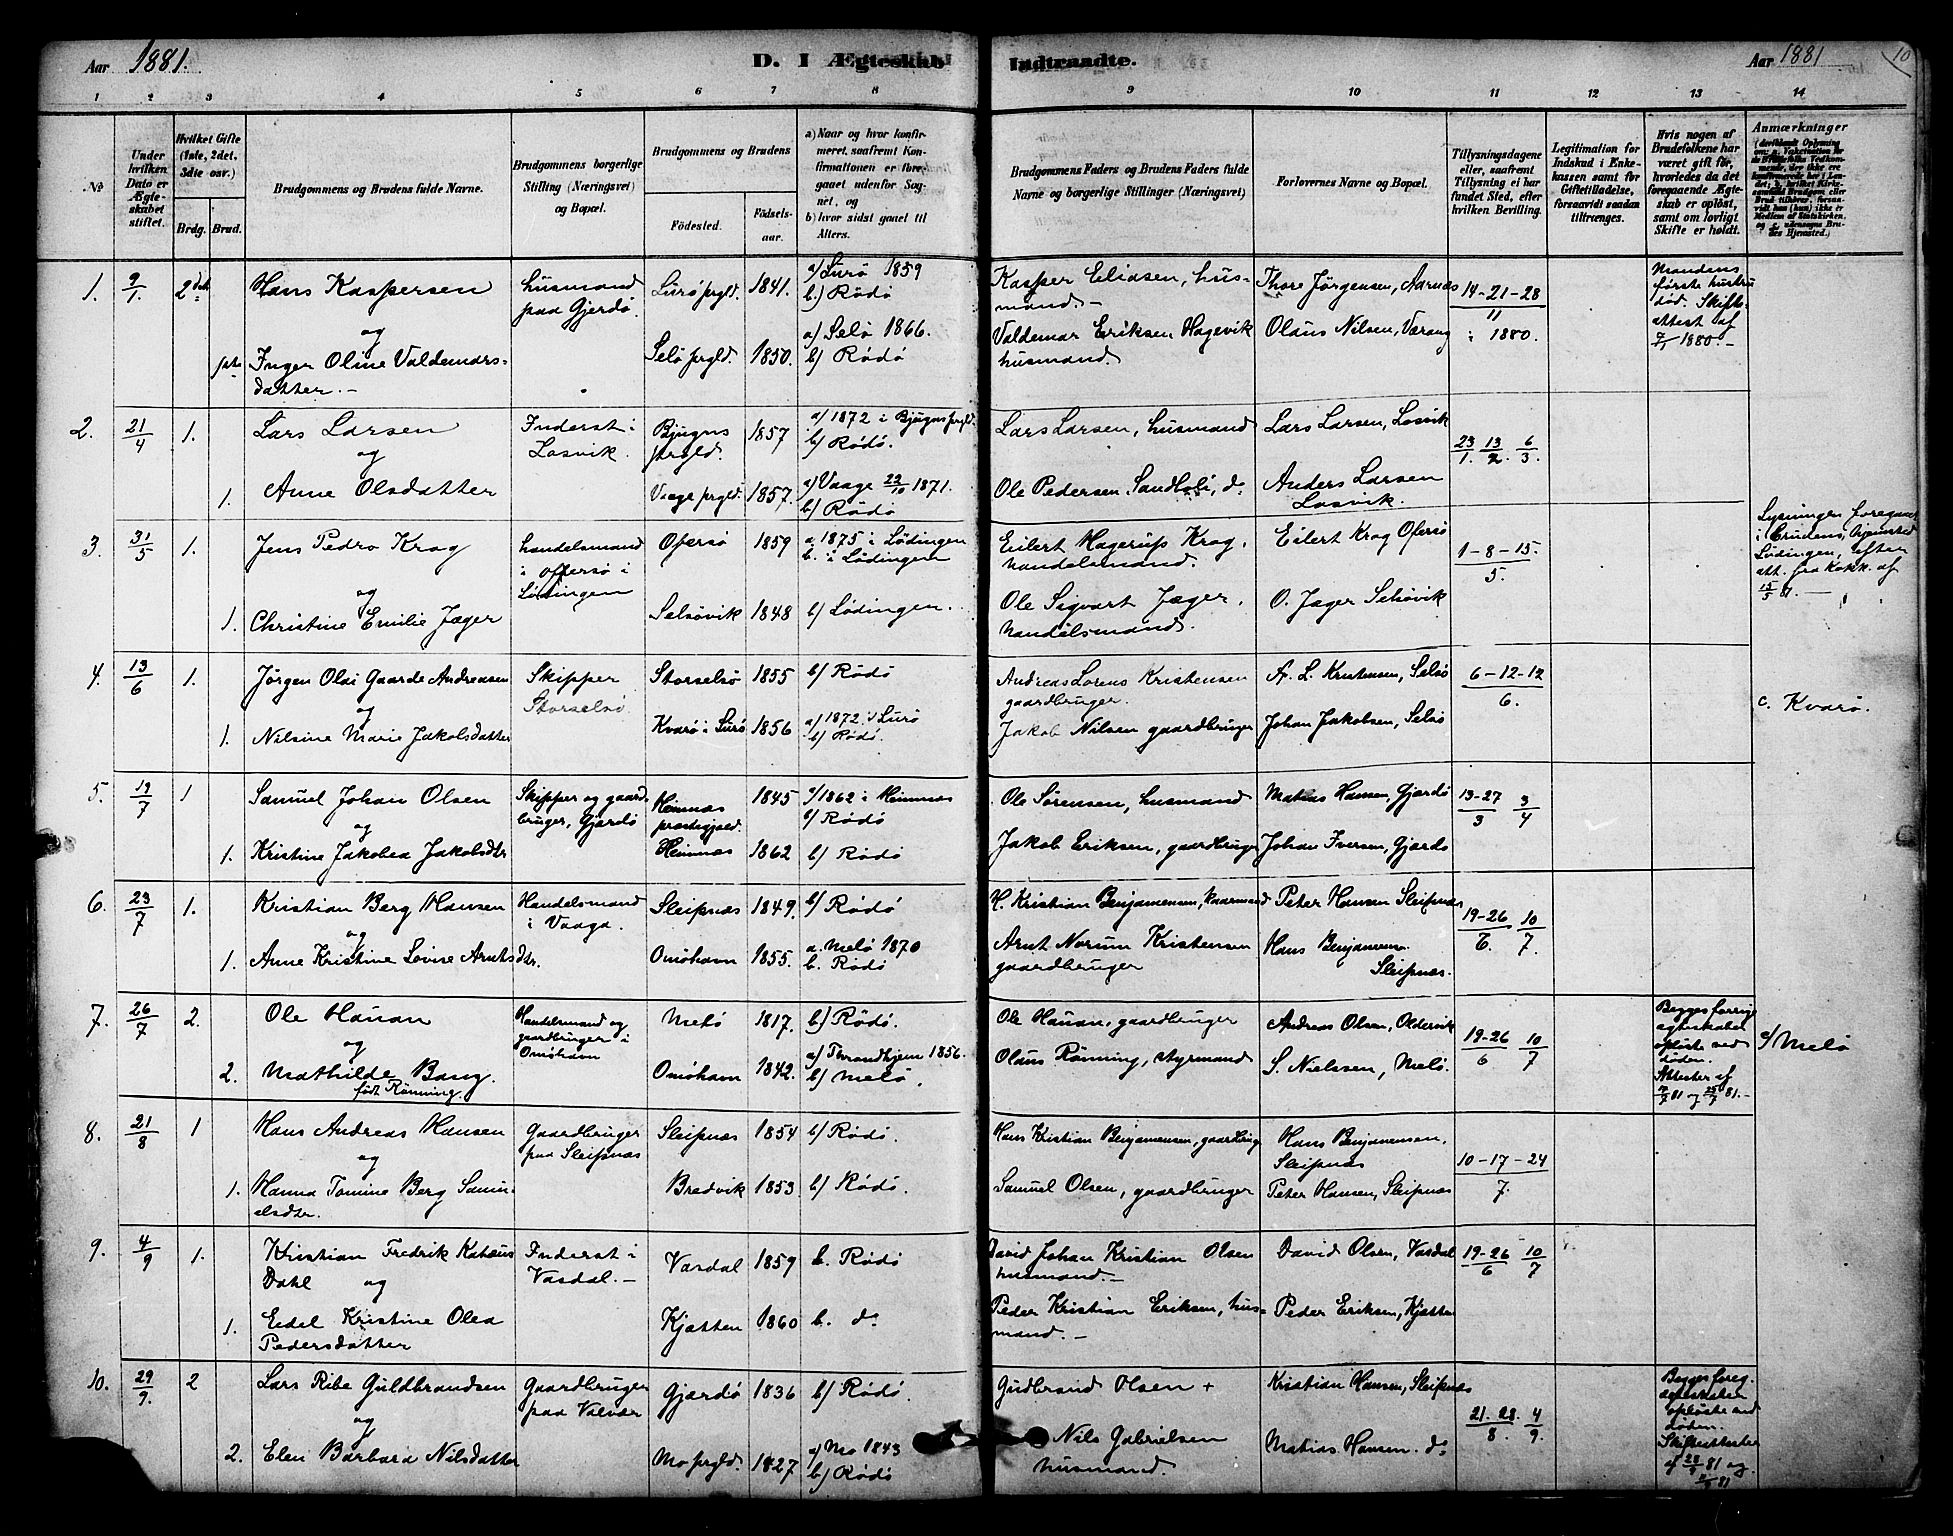 Aar 1881.
D. I Ægteskab Indtraadte.
Aar 1881
10
1 2 3 4 5 6 7 8 9 10 11 12 13 14
№
Under hvilken Dato er Ægteskabet stiftet.
Hvilket Gifte (1ste, 2det, 3die osv.)
Brdg. Brud.
Brudgommens og Brudens fulde Navne.
Brudgommens borgerlige Stilling (Næringsvei) og Bopæl.
Brudgommens og Brudens
Fødested.
Fødselsaar.
a) Naar og hvor konfirmeret, saafremt Konfirmationen er foregaaet udenfor Sognet, og
b) hvor sidst gaaet til Alters.
Brudgommens Faders og Brudens Faders fulde Navne og borgerlige Stillinger (Næringsvei)
Forlovernes Navne og Bopæl.
Tillysningsdagene eller, saafremt Tillysning ei har fundet Sted, efter hvilken Bevilling.
Legitimation for Indskud i Enkekassen samt for Giftetilladelse, forsaavidt saadan tiltrænges.
Hvis nogen af Brudefolkene har været gift før, hvorledes da det foregaaende Ægteskab er opløst, samt om lovligt Skifte er holdt.
Anmærkninger
1. 9/1. 2det Hans Kaspersen husmand paa Gjerdø. Lurø prgld. 1841. a) Lurø 1859 b.) Rødø Kasper Eliasen, husmand.- Thore Jørgensen, Aarnæs 14-21-28/11 1880. Mandens første hustru død. Skifteattest af 7/1 1880.-
og
1ste Inger Oline Valdemarsdatter.- Selø prgld. 1850. a) Selø 1866. b) Rødø Valdemar Eriksen Hagevik husmand. Olaus Nilsen, Værang
2. 21/4 1. Lars Larsen Inderst i Losvik. Bjugns prgld. 1857 a) 1872 i Bjugns prgld. b) Rødø. Lars Larsen, husmand Lars Larsen, Losvik 23/1. 13/2. 6/3.
og
1. Anne Olsdatter Vaage prgld. 1857. a) Vaage 22/10 1871. b) Rødø Ole Pedersen Sandholi, do. Anders Larsen Losvik.
3. 31/5 1. Jens Pedro Krog handelsmand i Offersø i Lødingen Ofersø 1859 a. 1875 i Lødingen b. i Lødingen Eilert Hagerup Krog, handelsmand. Eilert Krog Ofersø 1-8-15./5. Lysningen foregaaet i Brudens hjemsted Lødingen, efter att. fra Kokk. af 15/5 81.-
og
1. Christine Emilie Jæger Selsøvik 1848 b) Lødingen. Ole Sigvart Jæger, handelsmand. O. Jæger Selsøvik
4. 13/6 1. Jørgen Olai Gaarde Andreasen Skipper Storselsø. Storselsø 1855 b) Rødø Andreas Lorens Kristensen gaardbruger. A. L. Kristensen, Selsø 6-12-12/6.
og
1. Nilsine Marie Jakobsdatter Kvarø i Lurø 1856 a) 1872 i Lurø b) Rødø. Jakob Nilsen gaardbruger Johan Jakobsen, Selsø c. Kvarø.
5. 19/7 1 Samuel Johan Olsen Skipper og gaardbruger, Gjærdø Hemnæs præstegjæld. 1845 a) 1862 i Hemnæs b) Rødø Ole Sørensen, husmand Matias Hansen, Gjærdø 13-27/3 3/4
og
1. Kristine Jakobea Jakobsdtr Hemnæs 1862 b) Rødø Jakob Eriksen, gaardbruger Johan Iversen, Gjærdø
6. 23/7 1. Kristian Berg Hansen Handelsmand i Vaaga. Sleipnæs 1849. b) Rødø H. Kristian Benjaminsen, Peter Hansen Sleipnæs 19-26/6. 10/7.
og
1. Anne Kristine Lovise Arntsdtr. Omøhavn 1855. a. Melø 1870 b. Rødø Arnt Norum Kristensen gaardbruger Hans Benjaminsen Sleipnæs.
7. 26/7 2. Ole Hauan Handelsmand og gaardbruger i Omøhavn Melø 1817. b) Rødø. Ole Hauan, gaardbruger Andreas Olsen, Oldervik 19-26/6 10/7 Begges forrige egteskaber opløste ved døden. Attester af 81 og 81.- Melø
og
2. Mathilde Bang. født Rønning. Omøhavn 1842. a) Throndhjem 1856. b) Melø. Olaus Rønning, styrmand S. Nielsen, Melø.
8. 21/8 1 Hans Andreas Hansen Gaardbruger paa Sleipnæs Sleipnæs 1854 b) Rødø. Hans Kristian Benjaminsen, gaardbrug. Hans Benjaminsen, Sleipnæs 10-17-24/7.
og
1. Hanna Tomine Berg Samuelsdtr. Bredvik 1853 b) Rødø. Samuel Olsen, gaardbruger Peter Hansen, Sleipnæs
9. 4/9 1. Kristian Fredrik Kahæus Dahl Inderst i Vasdal.- Vasdal 1859 b. Rødø David Johan Kristian Olsen husmand.- David Olsen, Vasdal 19-26/6 10/7
og
1. Eedel Kristine Olea Pedersdatter Kjøtten 1860 b. do Peder Kristian Eriksen, husmand.- Peder Eriksen, Kjøtten
10. 29/9. 2 Lars Ribe Guldbrandsen Gaardbruger paa Valvær Gjærdø 1836 b) Rødø. Gudbrand Olsen + Kristian Hansen, Sleipnæs 21.28./8. 4/9. Begges foreg. ægteskaber opløste ved døden. Skifteattester af 28/9 81 og 81
og
2. Elen Barbara Nilsdatter Mo prgld. 1827 a) Mo 1843 b) Rødø Nils Gabrielsen husmand. Matias Hansen. do